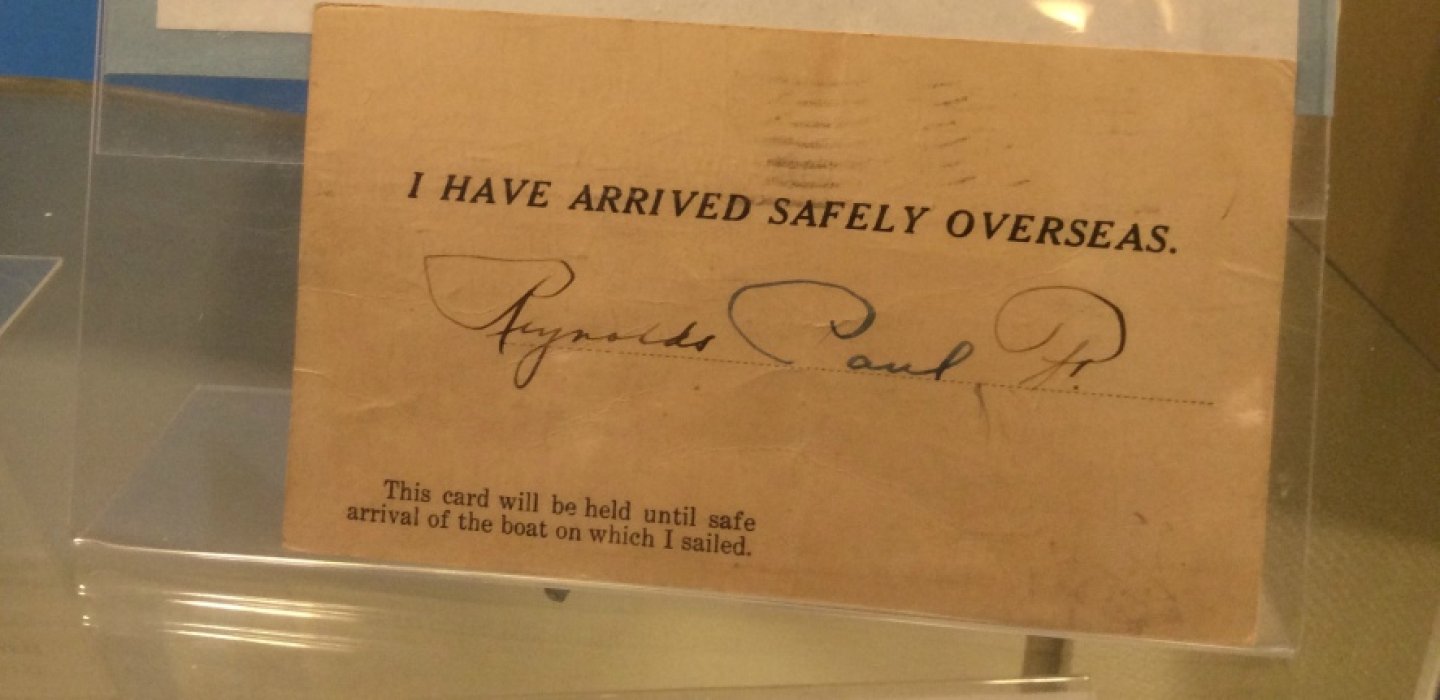 I HAVE ARRIVED SAFELY OVERSEAS.
Reynolds Paul Jr.
This card will be held until safe
arrival of the boat on which I sailed.